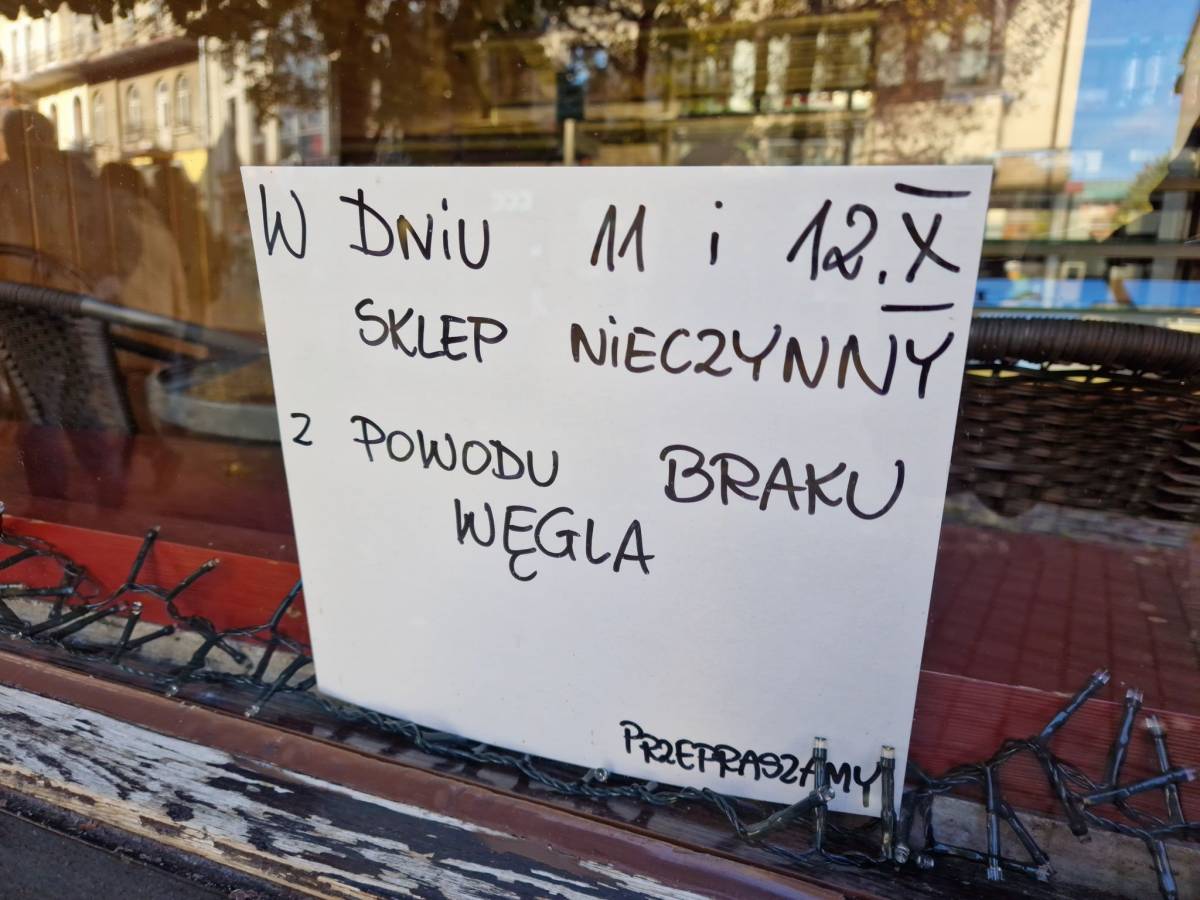 W DNiU 11 i 12.X
SKLEP NiECZYNNY
Z POWODU BRAKU
WĘGLA
PRZEPRASZAMY